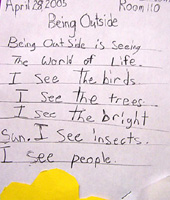 April 28, 2005 Room 110
Being Outside
Being OutSide is seeing
The World of Life.
I see the birds.
I see the trees...
I see the bright
Sun. I see insects.
I see people.